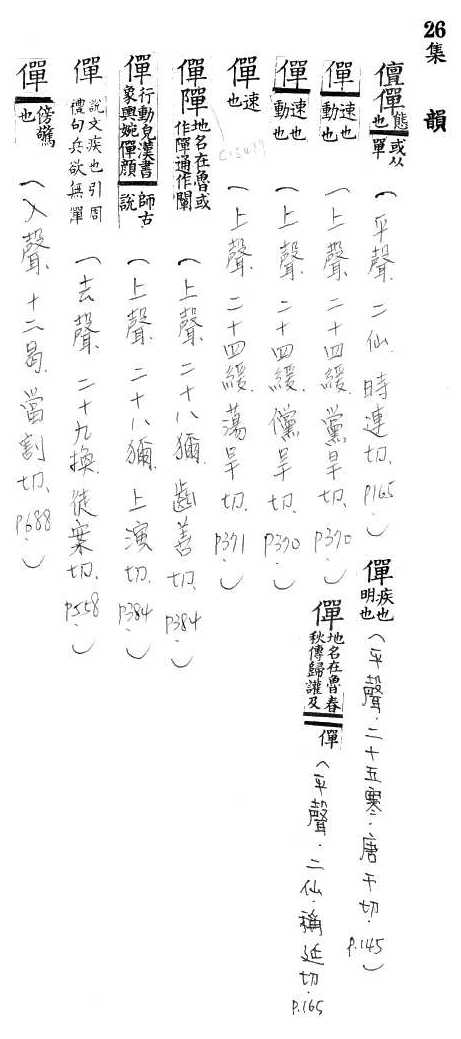 26集　韻
儃僤態也或从單（平聲．二仙．時連切．P165．）
僤疾也明也（平聲．二十五寒．唐干切．P.145）
僤速也動也（上聲．二十四緩．黨旱切．P370．）
僤地名在魯春秋傳歸讙及僤（平聲．二仙．稱延切．P.165
僤速也動也（上聲．二十四緩．儻旱切．P370．）
僤速也（上聲．二十四緩．蕩旱切．P371．）
僤㔊地名在魯或作㔊通作闡（上聲．二十八獮．齒善切．P384．）
僤行動皃漢書象輿婉僤顏師古說（上聲．二十八獮．上演切．P384．）
僤說文疾也引周禮句兵欲無僤（去聲．二十九換．徒案切．P558．）
僤傍驚也（入聲．十二曷．當割切．P688．）